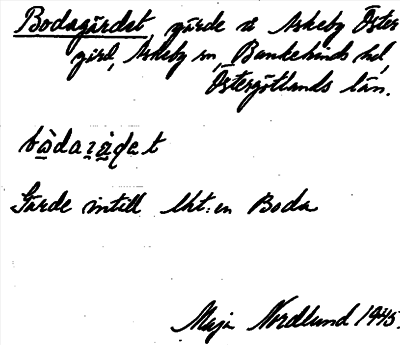 Bodagärdet, gärde i Askeby Öster
gård, Askeby sn, Bankekinds hd,
Östergötlands län.
bòdagärdet
Gärde intill lht:en Boda
Maja Nordlund 1945.